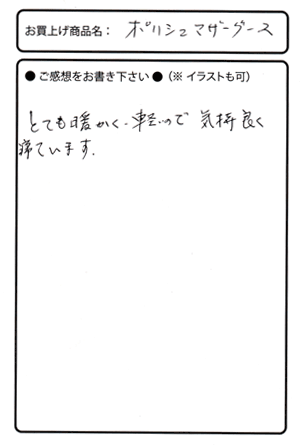 お買上げ商品名： ポリシュマザーグース
● ご感想をお書き下さい ●（※ イラストも可）
とても暖かく、軽いので 気持良く
寝ています.